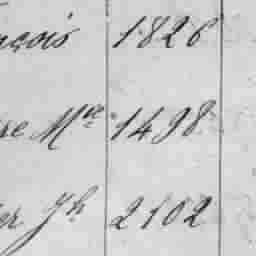 nçois 1826
re Mce 1498
er Jh 2102